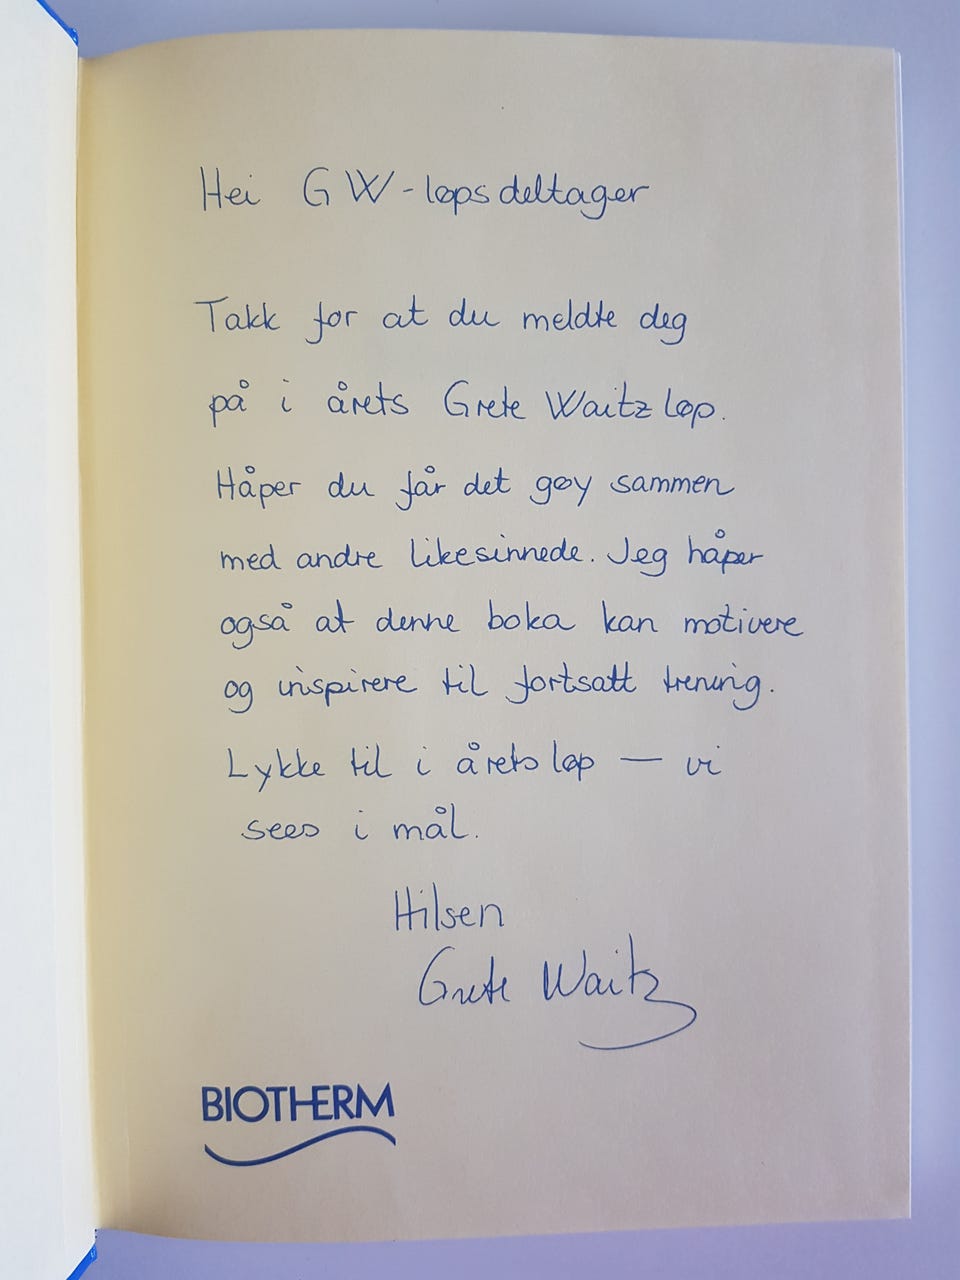 Hei GW-løpsdeltager
Takk for at du meldte deg
på i årets Grete Waitz løp.
Håper du får det gøy sammen
med andre likesinnede. Jeg håper
også at denne boka kan motivere
og inspirere til fortsatt trening.
Lykke til i årets løp — vi
sees i mål.
Hilsen
Grete Waitz
BIOTHERM